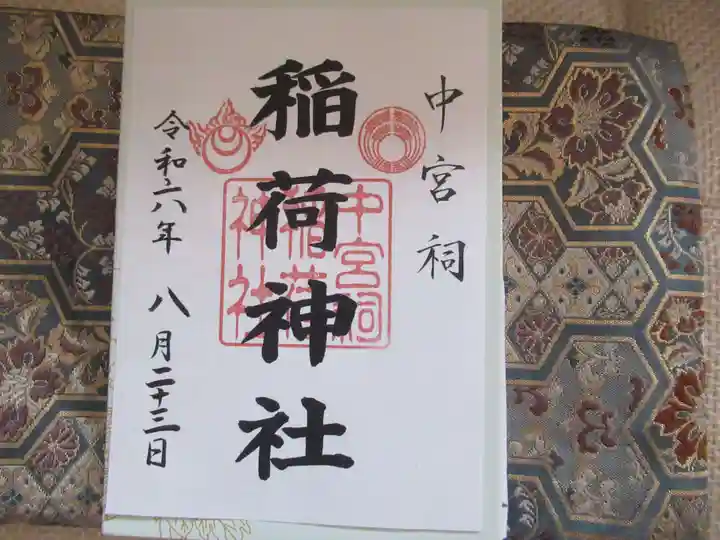 中宮祠
稲荷神社
令和六年 八月二十三日
中宮祠
稲荷
神社